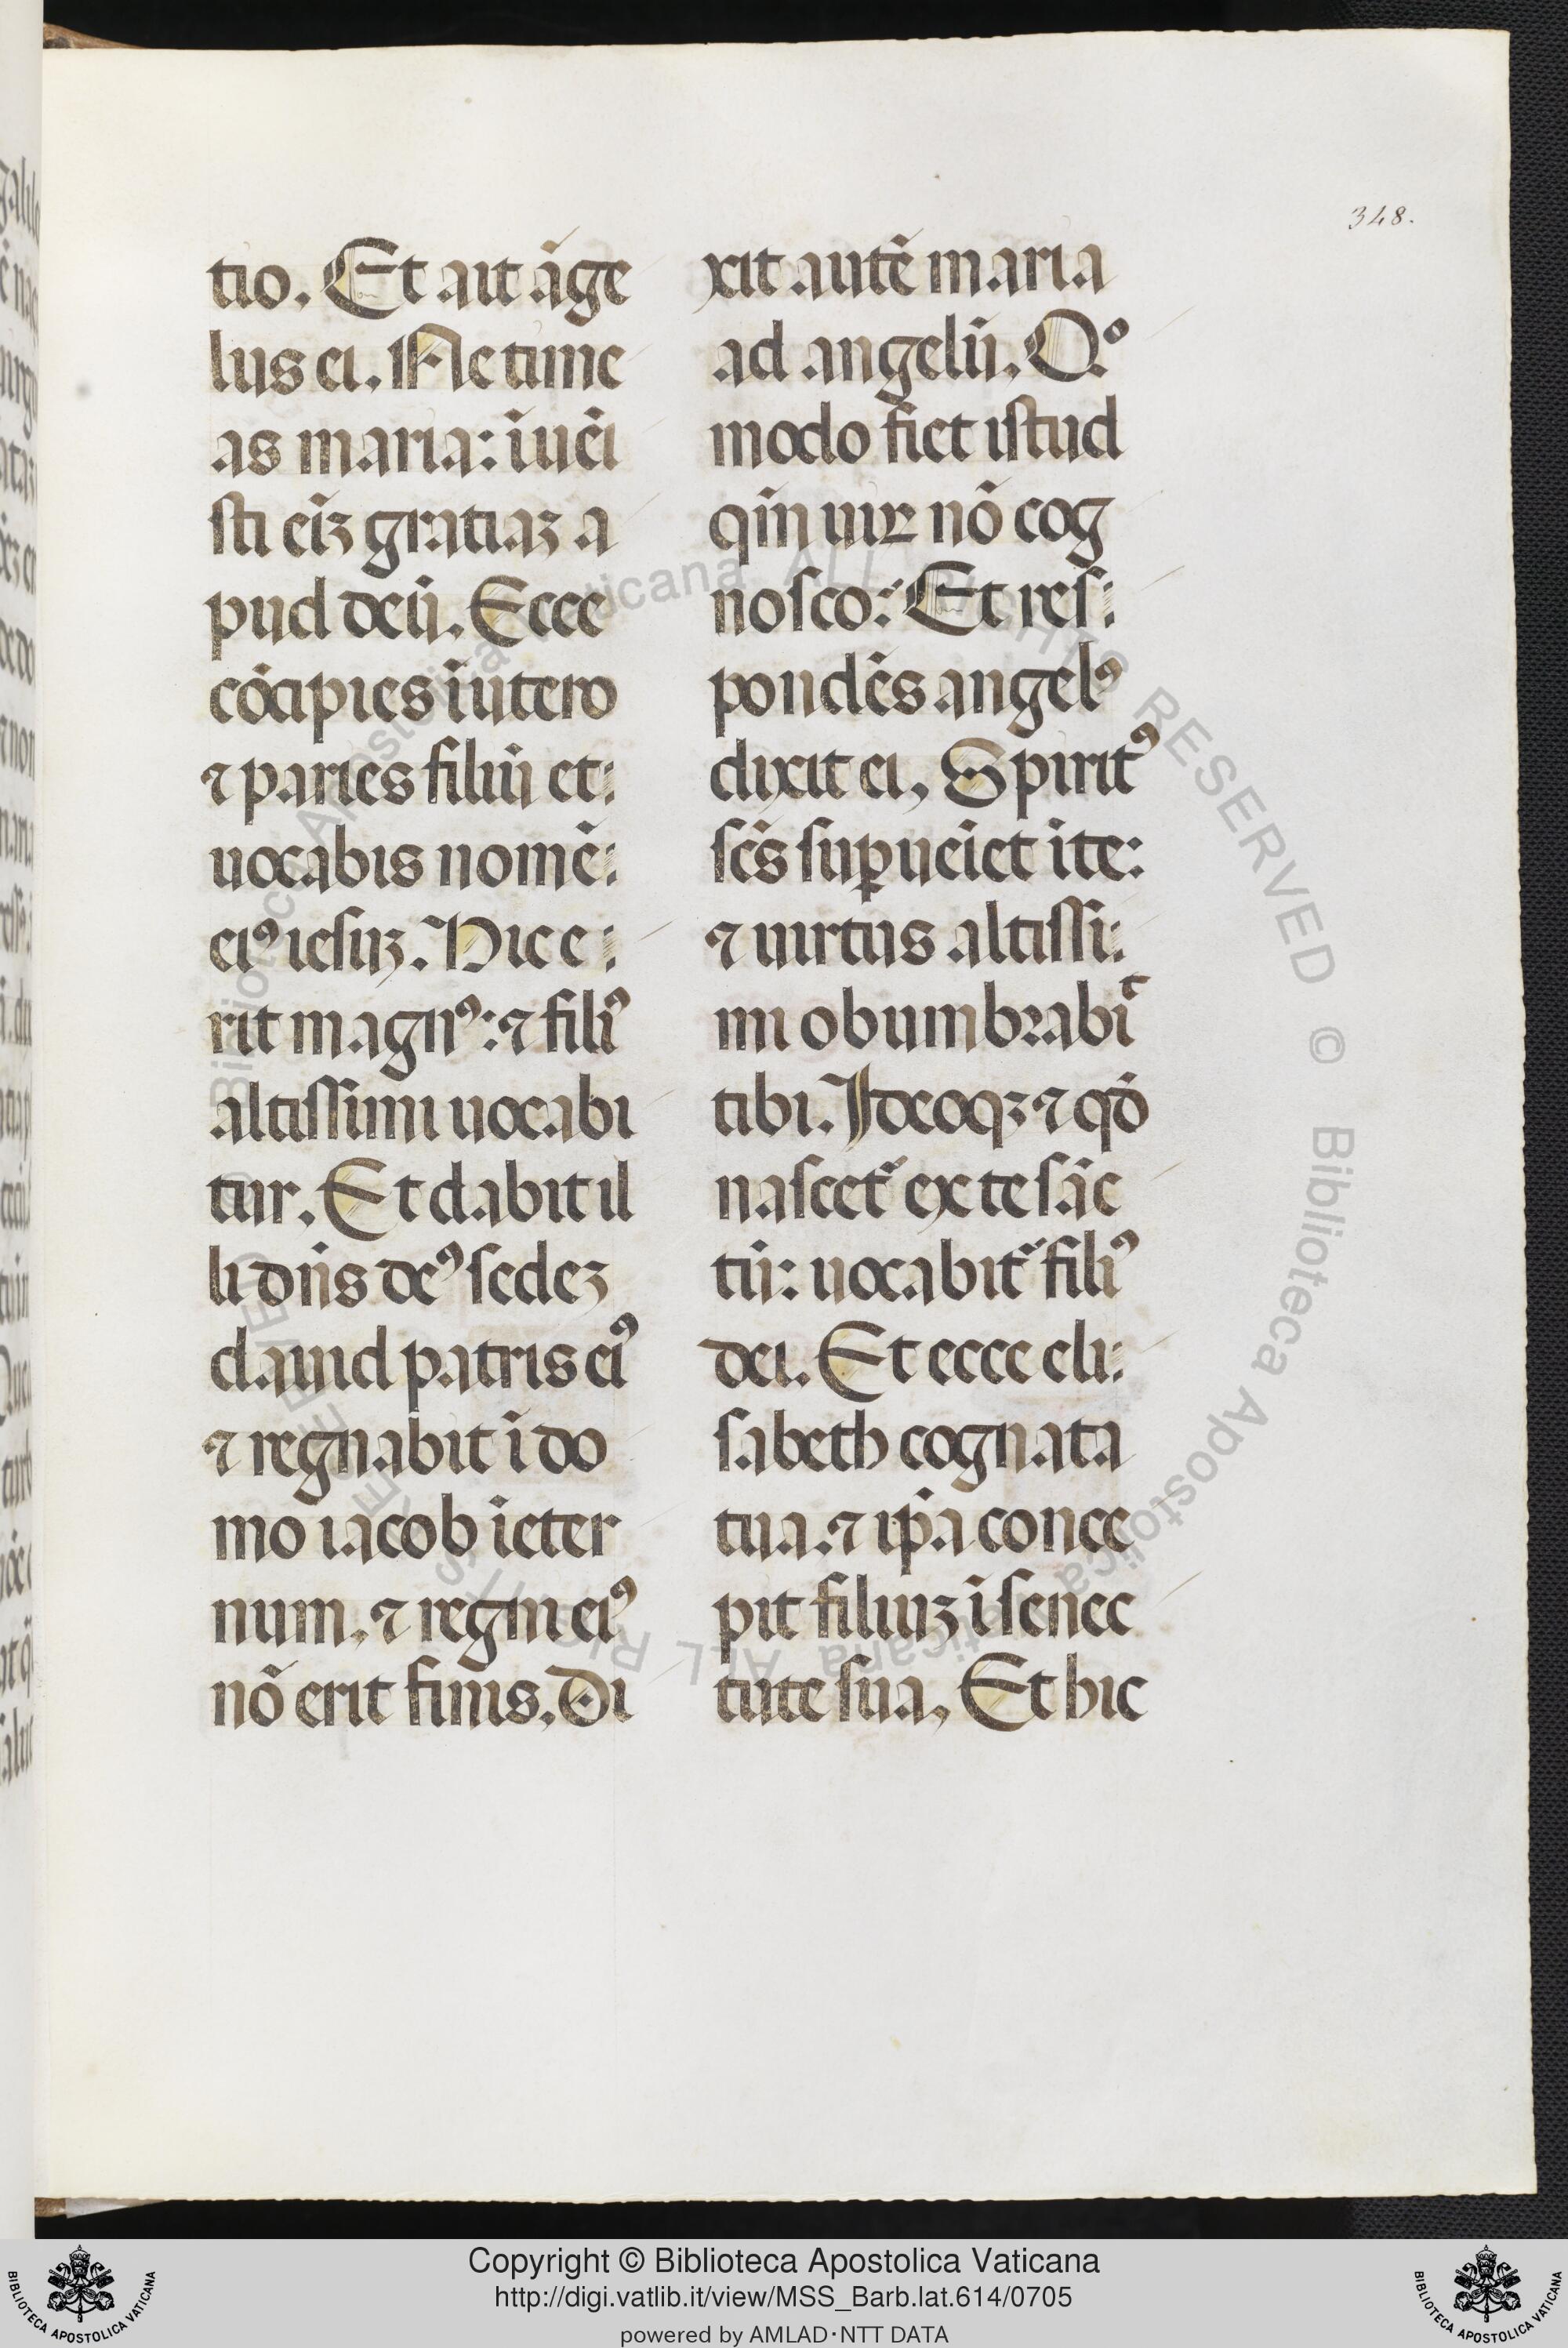 348.
tio. Et ait āge
lus ei. Ne time
as maria: īuēi
sti eīꝫ gratiaꝫ a
pud deū. Ecce
cōcipies ī utero
⁊ paries filiū et:
uocabis nomē:
eiꝰ iesuꝫ. Hic e:
rit magnꝰ: ⁊ filiꝰ
altissimi uocabi
tur. Et dabit il
li dn̄s deꝰ sedeꝫ
dauid patris eiꝰ
⁊ regnabit ī do
mo iacob īeter
num. ⁊ regni eiꝰ
nō erit finis. Di
xit autē maria
ad angelū. Qº
modo fiet istud
qm̄ uiꝛ nō cog
nosco: Et res:
pondēs angelꝰ
dixit ei, Spiritꝰ
scs̄ suꝑueīet ī te:
⁊ uirtus altissi:
mi obumbꝛabiᷓ
tibi. Ideoqꝫ ⁊ qđ
nascet᷑ ex te sāc
tū: uocabit᷑ filiꝰ
dei. Et ecce eli:
sabeth cognata
tua. ⁊ ip̄a conce
pit filiuꝫ ī senec
tute sua, Et hic
Copyright © Biblioteca Apostolica Vaticana
http://digi.vatlib.it/view/MSS_Barb.lat.614/0705
powered by AMLAD·NTT DATA
BIBLIOTECA APOSTOLICA VATICANA
BIBLIOTECA APOSTOLICA VATICANA